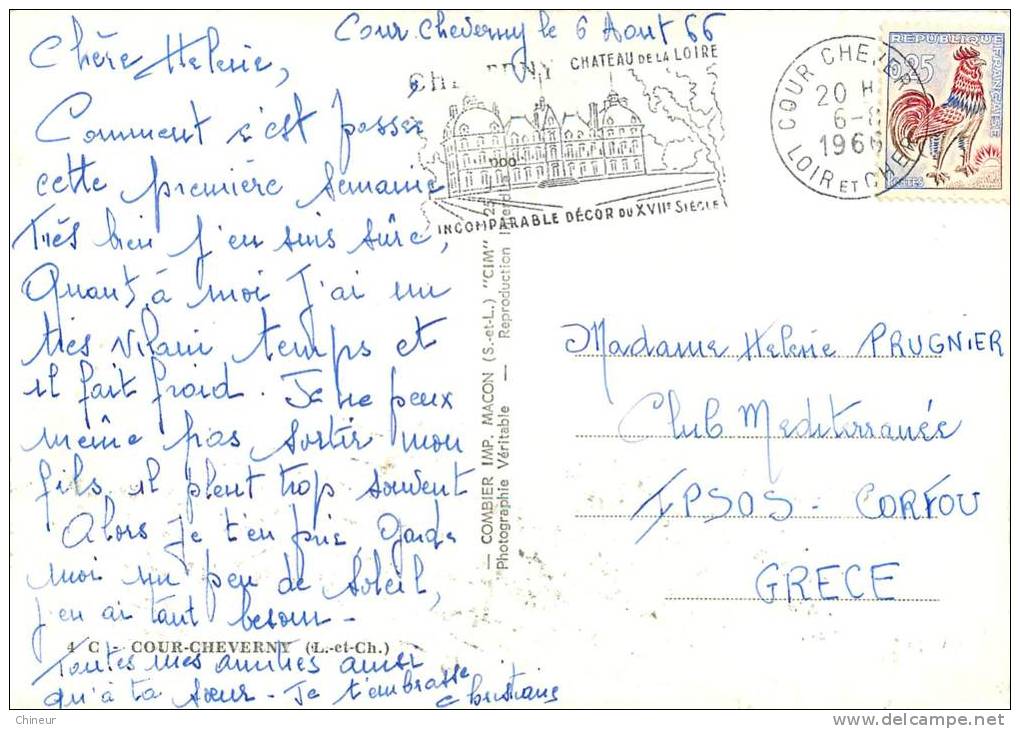 Cour. Cheverny le 6 Aout 66
Chère Helenie,
Comment s'est passée
cette première semaine
Très bien j'en suis sûre,
Quant à moi J'ai un
très vilain temps et
il fait froid. Je ne peux
même pas sortir mon
fils, il pleut trop souvent
Alors je t'en prie, Garde
moi un peu de soleil,
j'en ai tant besoin -
4 C - COUR-CHEVERNY (L.-et-Ch.)
Toutes mes amitiés ainsi
qu'à ta sœur - Je t'embrasse
Christiane
CHATEAU DE LA LOIRE
INCOMPARABLE DÉCOR DU XVIIe SIÈCLE
COUR CHEVERNY
20 H
6-8
1966
LOIR ET CHER
REPUBLIQUE FRANÇAISE
0,25
POSTES
— COMBIER IMP. MACON (S.-et-L.) "CIM"
Photographie Véritable — Reproduction
Madame Helenie PRUGNIER
Club Mediterranée
IPSOS - CORFOU
GRECE
Chineur
delcampe.net